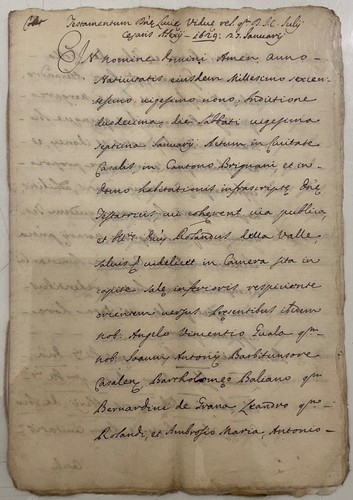 Testamentum Dnę Lucię Viduę rel. qm D. M. Julij
Cesaris Alexij - 1629: 27. Januarij
In nomine Domini Amen, anno
Nativitatis eiusdem Millesimo sexcen-
tesimo vigesimo nono, Indictione
duodecima, die Sabbati vigesima
septima Januarij. Actum in Civitate
Casalis in Cantono Brignani, et in
domo habitationis infrascriptę Dnę
Testatricis cui coherent via publica
et Rolandus della Valle,
salvis et videlicet in Camera sita in
capite salę inferioris respiciente
orientem versus. Presentibus ibidem
Nob. Angelo Vincentio Guala qm
Nob. Antonio Barbitonsore
Casalen, Bartholomęo Baleano qm
Bernardini de Grana, Leandro qm
Rolandi, et Ambrosio Maria, Antonio